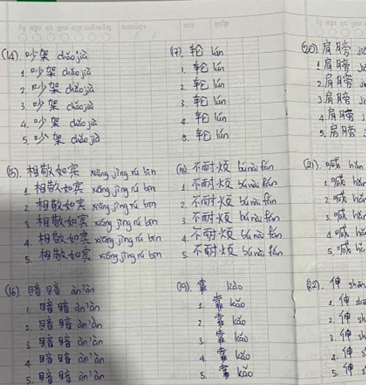 (14) 吵架 chǎojià
1. 吵架 chǎojià
2. 吵架 chǎojià
3. 吵架 chǎojià
4. 吵架 chǎojià
5. 吵架 chǎojià
(15) 相敬如宾 xiāng jìng rú bīn
1. 相敬如宾 xiāng jìng rú bīn
2. 相敬如宾 xiāng jìng rú bīn
3. 相敬如宾 xiāng jìng rú bīn
4. 相敬如宾 xiāng jìng rú bīn
5. 相敬如宾 xiāng jìng rú bīn
(16) 暗暗 àn'àn
1. 暗暗 àn'àn
2. 暗暗 àn'àn
3. 暗暗 àn'àn
4. 暗暗 àn'àn
5. 暗暗 àn'àn
(17) 轮 lún
1. 轮 lún
2. 轮 lún
3. 轮 lún
4. 轮 lún
5. 轮 lún
(18) 不耐烦 bú nài fán
1. 不耐烦 bú nài fán
2. 不耐烦 bú nài fán
3. 不耐烦 bú nài fán
4. 不耐烦 bú nài fán
5. 不耐烦 bú nài fán
(19) 靠 kào
1. 靠 kǎo
2. 靠 kǎo
3. 靠 kǎo
4. 靠 kǎo
5. 靠 kǎo
(20) 肩膀
1. 肩膀
2. 肩膀
3. 肩膀
4. 肩膀
5. 肩膀
(21) 喊 hǎn
1. 喊
2. 喊
3. 喊
4. 喊
5. 喊
(22) 伸
1. 伸
2. 伸
3. 伸
4. 伸
5. 伸